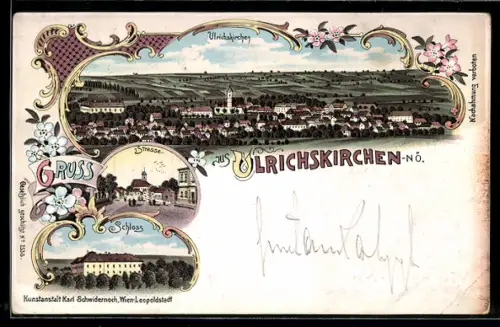 Ulrichskirchen
Nachahmung verboten
Strasse
GRUSS AUS ULRICHSKIRCHEN-N.Ö.
Schloss
Gesetzlich geschützt
Kunstanstalt Karl Schwidernoch, Wien-Leopoldstadt